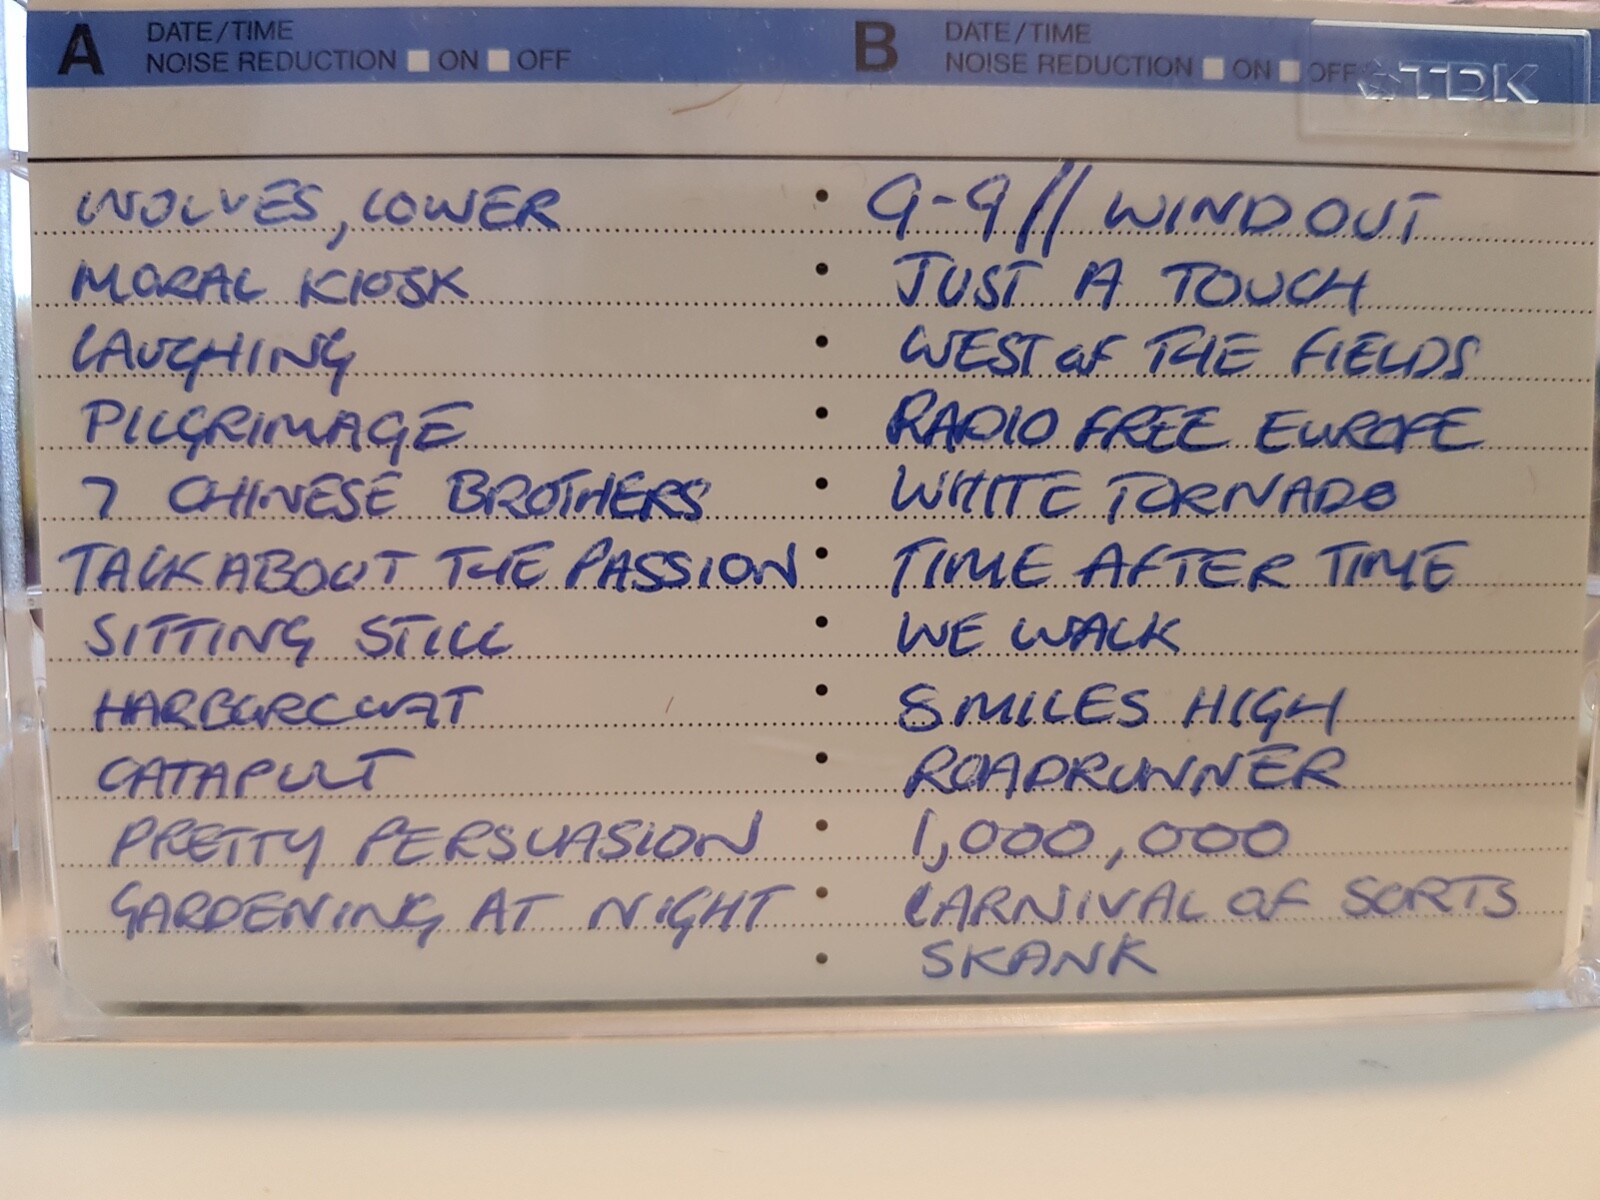 A DATE/TIME
NOISE REDUCTION ON OFF
WOLVES, LOWER
MORAL KIOSK
LAUGHING
PILGRIMAGE
7 CHINESE BROTHERS
TALK ABOUT THE PASSION
SITTING STILL
HARBORCOAT
CATAPULT
PRETTY PERSUASION
GARDENING AT NIGHT
B DATE/TIME
NOISE REDUCTION ON OFF
TDK
9-9 // WINDOUT
JUST A TOUCH
WEST OF THE FIELDS
RADIO FREE EUROPE
WHITE TORNADO
TIME AFTER TIME
WE WALK
8 MILES HIGH
ROADRUNNER
1,000,000
CARNIVAL OF SORTS
SKANK